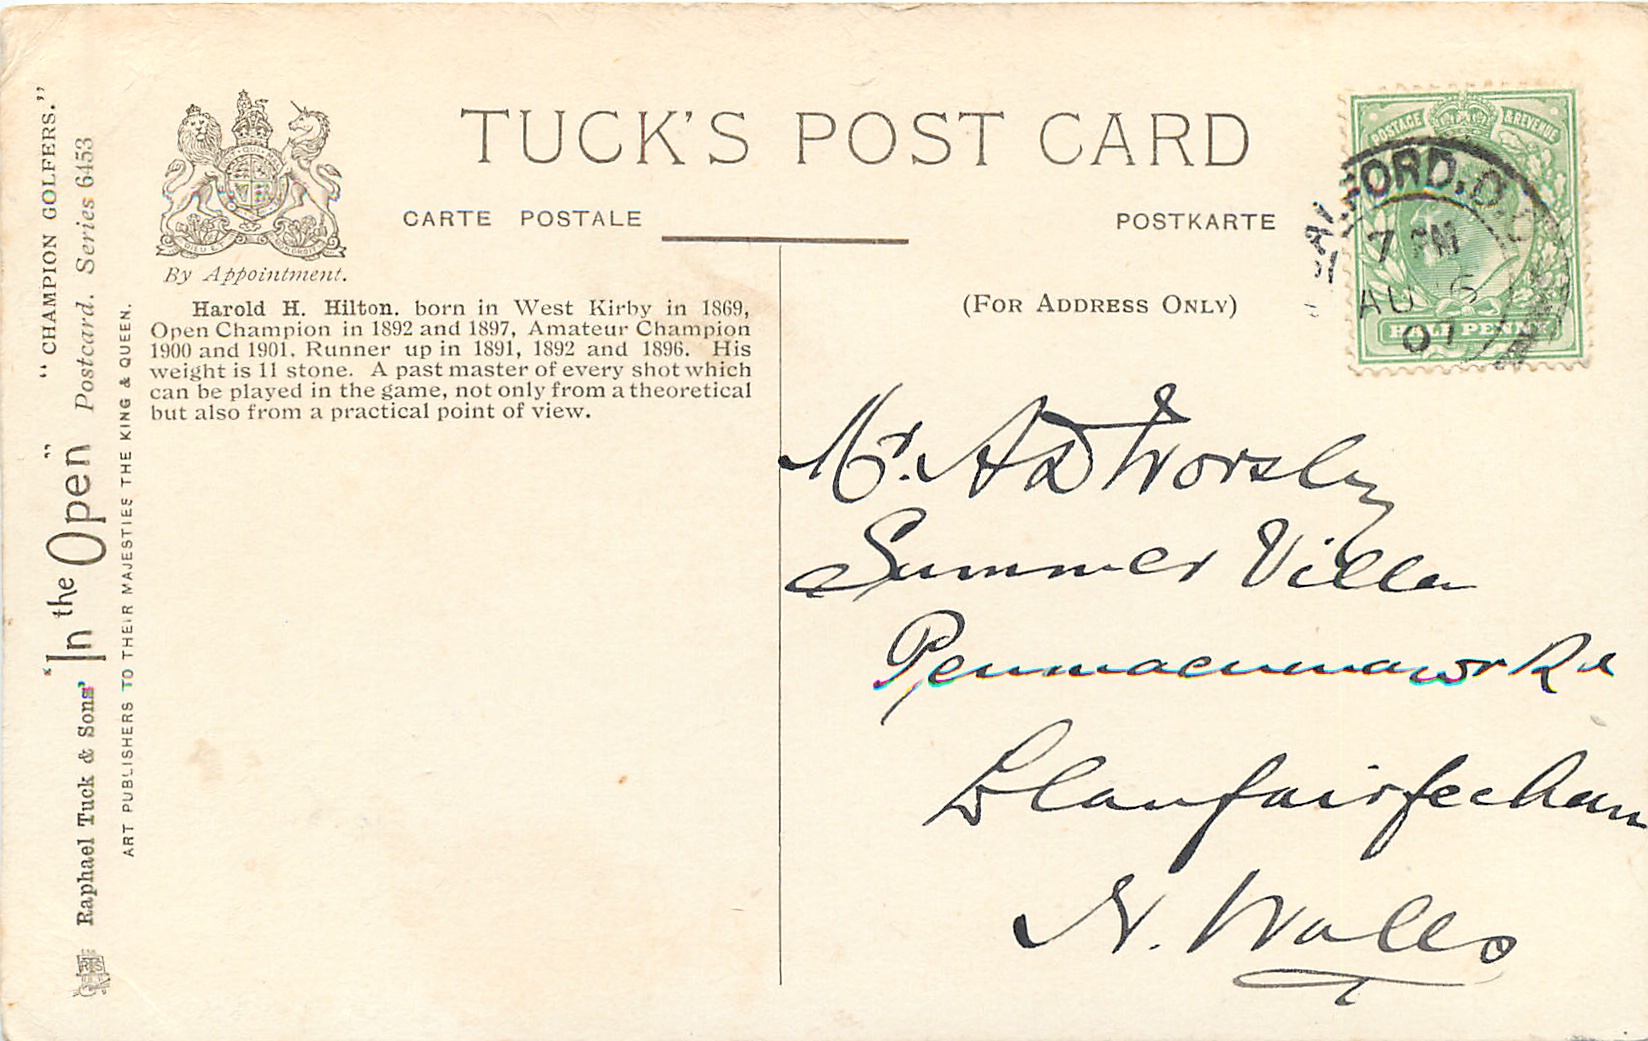 TUCK'S POST CARD
CARTE POSTALE
POSTKARTE
By Appointment.
(For Address Only)
Harold H. Hilton. born in West Kirby in 1869,
Open Champion in 1892 and 1897, Amateur Champion
1900 and 1901. Runner up in 1891, 1892 and 1896. His
weight is 11 stone. A past master of every shot which
can be played in the game, not only from a theoretical
but also from a practical point of view.
Raphael Tuck & Sons' "In the Open" "CHAMPION GOLFERS."
Postcard. Series 6453
ART PUBLISHERS TO THEIR MAJESTIES THE KING & QUEEN.
POSTAGE & REVENUE
HALFPENNY
7 PM
AU 6
07
Mr. A D Worsley
Summer Villa
Penmaenmawr Rd
Llanfairfechan
N. Wales